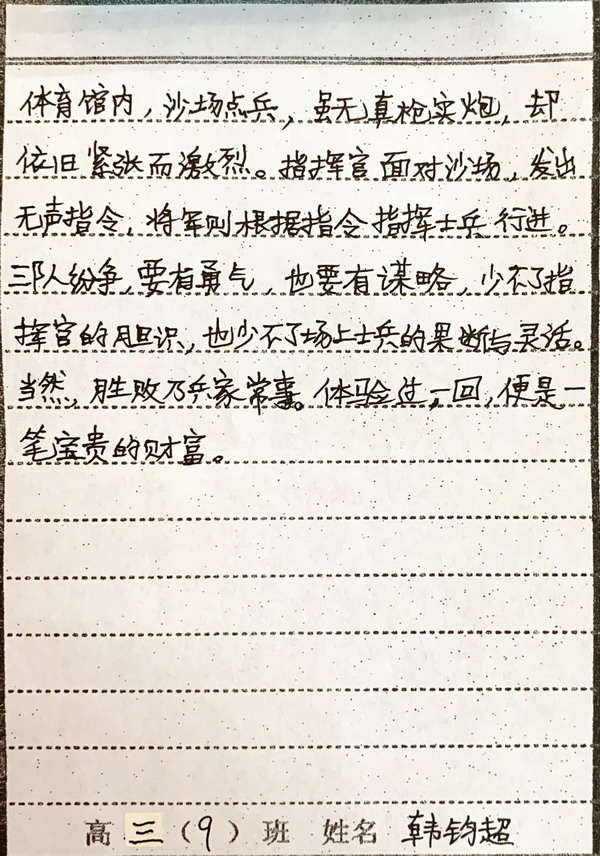 体育馆内，沙场点兵，虽无真枪实炮，却
依旧紧张而激烈。指挥官面对沙场，发出
无声指令，将军则根据指令指挥士兵行进。
三队人纷争，要有勇气，也要有谋略，少不了指
挥官的胆识，也少不了场上士兵的果断与灵活。
当然，胜败乃兵家常事。体验过一回，便是一
笔宝贵的财富。
高三（9）班 姓名 韩钧超